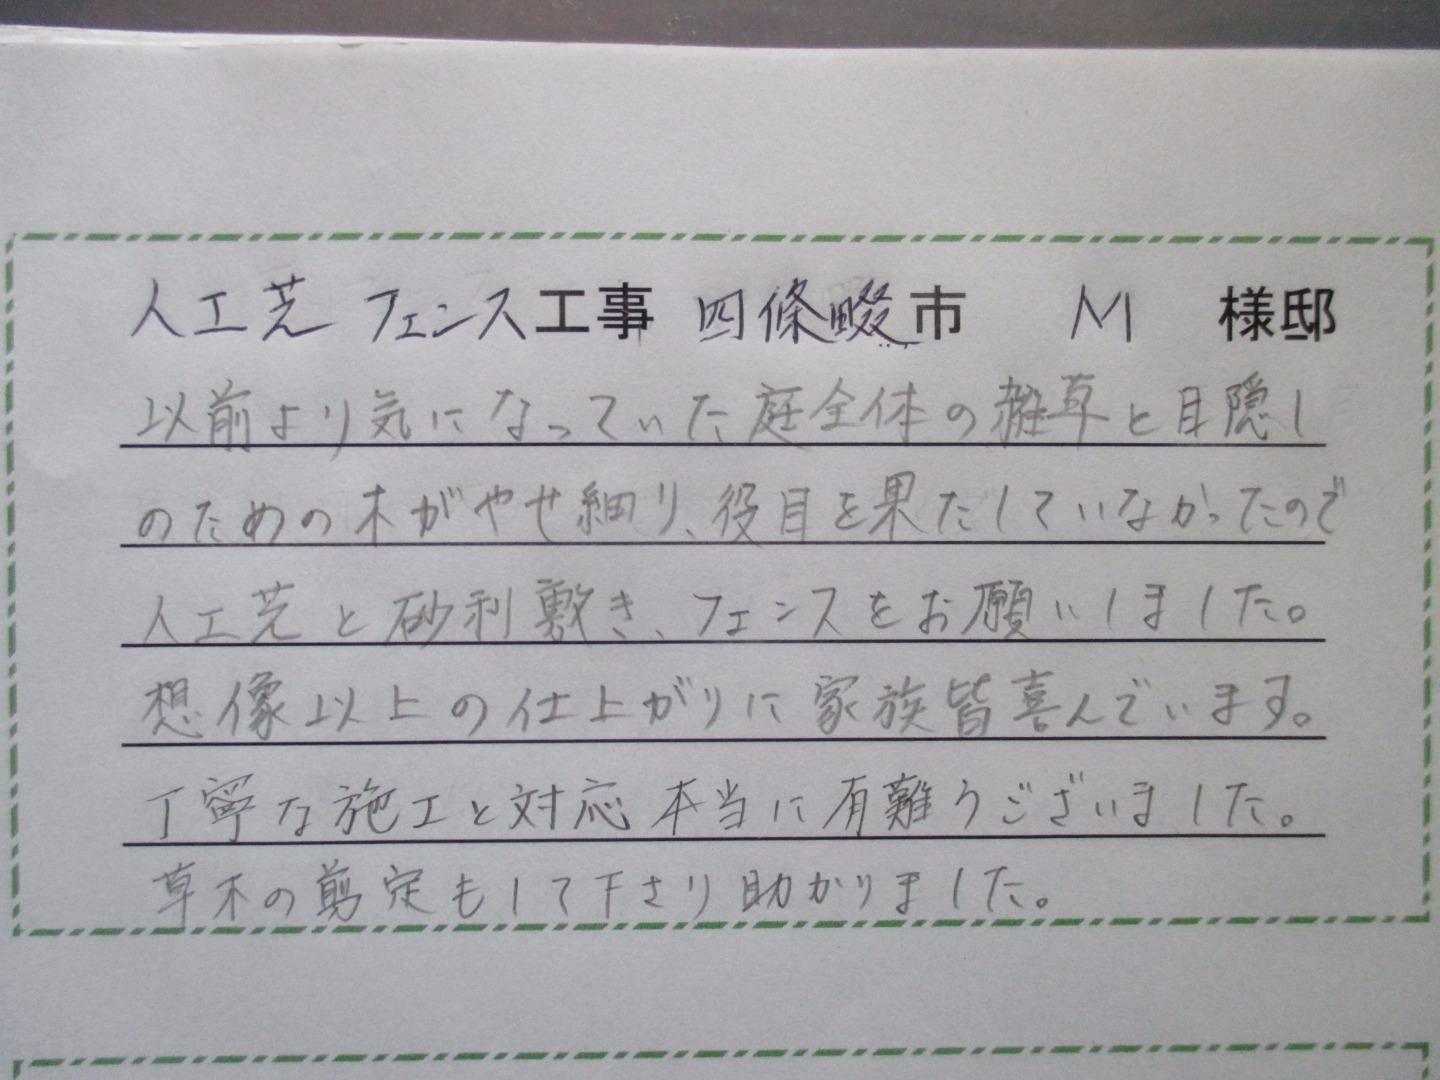 人工芝 フェンス工事 四條畷市 M 様邸
以前より気になっていた庭全体の雑草と目隠し
のための木がやせ細り、役目を果たしていなかったので
人工芝と砂利敷き、フェンスをお願いしました。
想像以上の仕上がりに家族皆喜んでいます。
丁寧な施工と対応本当に有難うございました。
草木の剪定もして下さり助かりました。